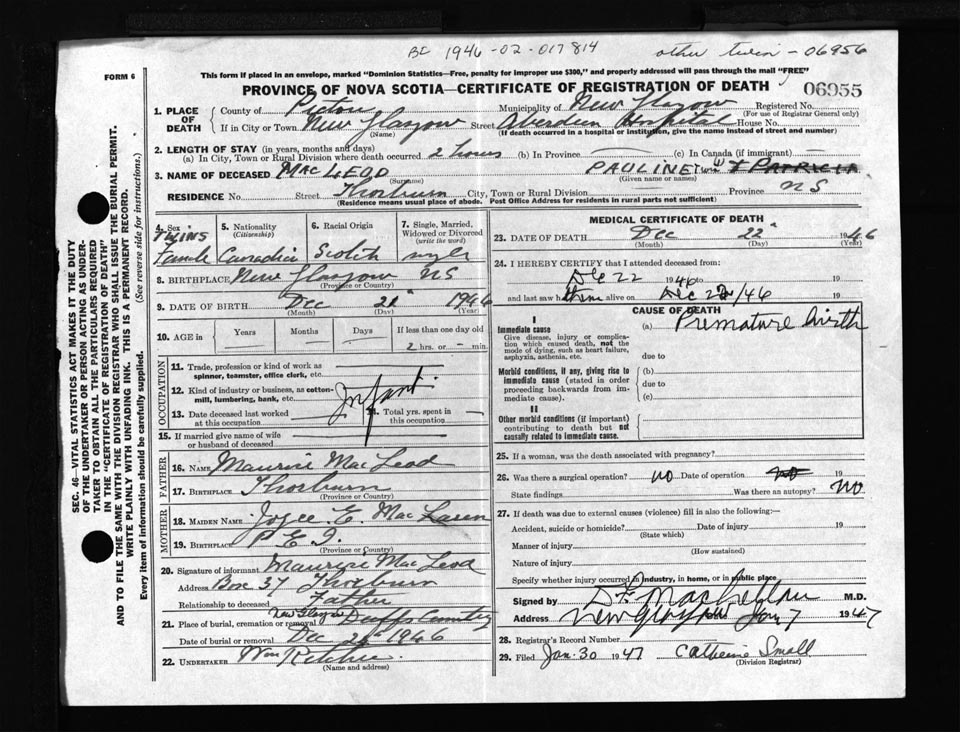 BE 1946-02-017814
other twin - 06956
FORM 6
This form if placed in an envelope, marked "Dominion Statistics—Free, penalty for improper use $300," and properly addressed will pass through the mail "FREE"
PROVINCE OF NOVA SCOTIA—CERTIFICATE OF REGISTRATION OF DEATH
06955
1. PLACE OF DEATH
County of Pictou Municipality of New Glasgow Registered No.
(For use of Registrar General only)
If in City or Town New Glasgow Street Aberdeen Hospital House No.
(Name) (If death occurred in a hospital or institution, give the name instead of street and number)
2. LENGTH OF STAY (in years, months and days)
(a) In City, Town or Rural Division where death occurred 2 hours (b) In Province — (c) In Canada (if immigrant) —
3. NAME OF DECEASED MacLEOD PAULINE Twin & PATRICIA
(Surname) (Given name or names)
RESIDENCE No. Street Thorburn City, Town or Rural Division Province NS
(Residence means usual place of abode. Post Office Address for residents in rural parts not sufficient)
4. Sex Twins Female
5. Nationality (Citizenship) Canadian
6. Racial Origin Scotch
7. Single, Married, Widowed or Divorced (write the word) single
8. BIRTHPLACE New Glasgow NS
(Province or Country)
9. DATE OF BIRTH Dec 21" 1946
(Month) (Day) (Year)
10. AGE in Years Months Days If less than one day old
2 hrs. or — min.
OCCUPATION
11. Trade, profession or kind of work as spinner, teamster, office clerk, etc.
12. Kind of industry or business, as cotton-mill, lumbering, bank, etc.
Infant
13. Date deceased last worked at this occupation
14. Total yrs. spent in this occupation —
15. If married give name of wife or husband of deceased
FATHER
16. NAME Maurice MacLeod
17. BIRTHPLACE Thorburn
(Province or Country)
MOTHER
18. MAIDEN NAME Joyce E. MacLaren
19. BIRTHPLACE P E I
(Province or Country)
20. Signature of informant Maurice MacLeod
Address Box 37 Thorburn
Relationship to deceased Father
21. Place of burial, cremation or removal New Glasgow Duffs Cemetery
Date of burial or removal Dec 1946
22. UNDERTAKER Wm Ritchie
(Name and address)
MEDICAL CERTIFICATE OF DEATH
23. DATE OF DEATH Dec 22" 1946
(Month) (Day) (Year)
24. I HEREBY CERTIFY that I attended deceased from:
Dec 22 1946 to 19
and last saw h them alive on Dec 22/46 19
CAUSE OF DEATH
I
Immediate cause (a) Premature birth
Give disease, injury or complication which caused death, not the mode of dying, such as heart failure, asphyxia, asthenia, etc.
due to
Morbid conditions, if any, giving rise to immediate cause (stated in order proceeding backwards from immediate cause).
(b)
due to
(c)
II
Other morbid conditions (if important) contributing to death but not causally related to immediate cause.
25. If a woman, was the death associated with pregnancy?
26. Was there a surgical operation? no Date of operation no 19
State findings Was there an autopsy? NO
27. If death was due to external causes (violence) fill in also the following:—
Accident, suicide or homicide? Date of injury 19
(State which)
Manner of injury
(How sustained)
Nature of injury
Specify whether injury occurred in industry, in home, or in public place
Signed by M.D.
Address New Glasgow Jan 7 1947
28. Registrar's Record Number
29. Filed Jan. 30 1947 Catherine Small
(Division Registrar)
SEC. 46—VITAL STATISTICS ACT MAKES IT THE DUTY
OF THE UNDERTAKER OR PERSON ACTING AS UNDER-
TAKER TO OBTAIN ALL THE PARTICULARS REQUIRED
IN THE "CERTIFICATE OF REGISTRATION OF DEATH"
AND TO FILE THE SAME WITH THE DIVISION REGISTRAR WHO SHALL ISSUE THE BURIAL PERMIT.
WRITE PLAINLY WITH UNFADING INK. THIS IS A PERMANENT RECORD.
Every item of information should be carefully supplied. (See reverse side for instructions.)